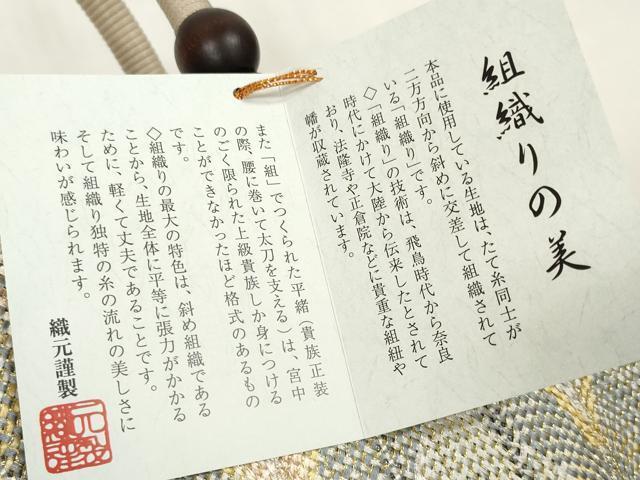 組織りの美
本品に使用している生地は、たて糸同士が
二方方向から斜めに交差して組織されて
いる「組織り」です。
◇「組織り」の技術は、飛鳥時代から奈良
時代にかけて大陸から伝来したとされて
おり、法隆寺や正倉院などに貴重な組紐や
幡が収蔵されています。
また「組」でつくられた平緒（貴族正装
の際、腰に巻いて太刀を支える）は、宮中
のごく限られた上級貴族しか身につける
ことができなかったほど格式のあるもの
です。
◇組織りの最大の特色は、斜め組織である
ことから、生地全体に平等に張力がかかる
ために、軽くて丈夫であることです。
そして組織り独特の糸の流れの美しさに
味わいが感じられます。
織元謹製